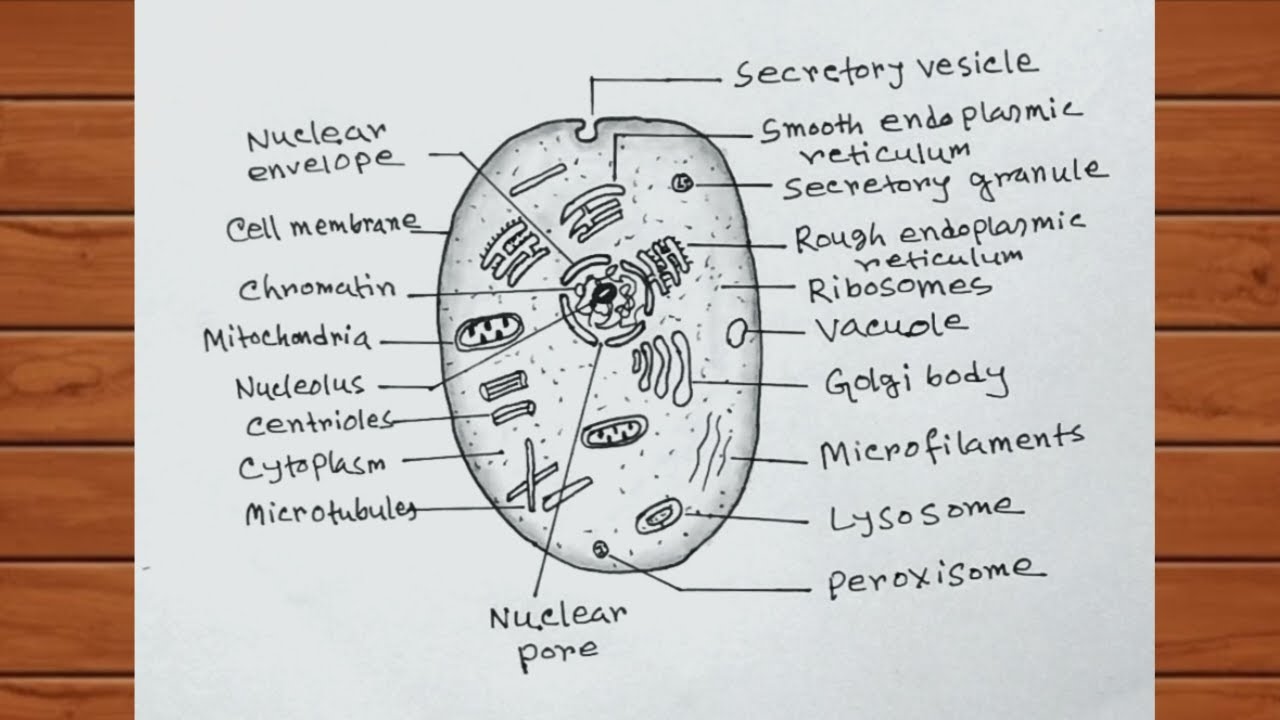 Secretory vesicle
Smooth endoplasmic
reticulum
Secretory granule
Rough endoplasmic
reticulum
Ribosomes
Vacuole
Golgi body
Microfilaments
Lysosome
Peroxisome
Nuclear
envelope
Cell membrane
Chromatin
Mitochondria
Nucleolus
Centrioles
Cytoplasm
Microtubules
Nuclear
pore